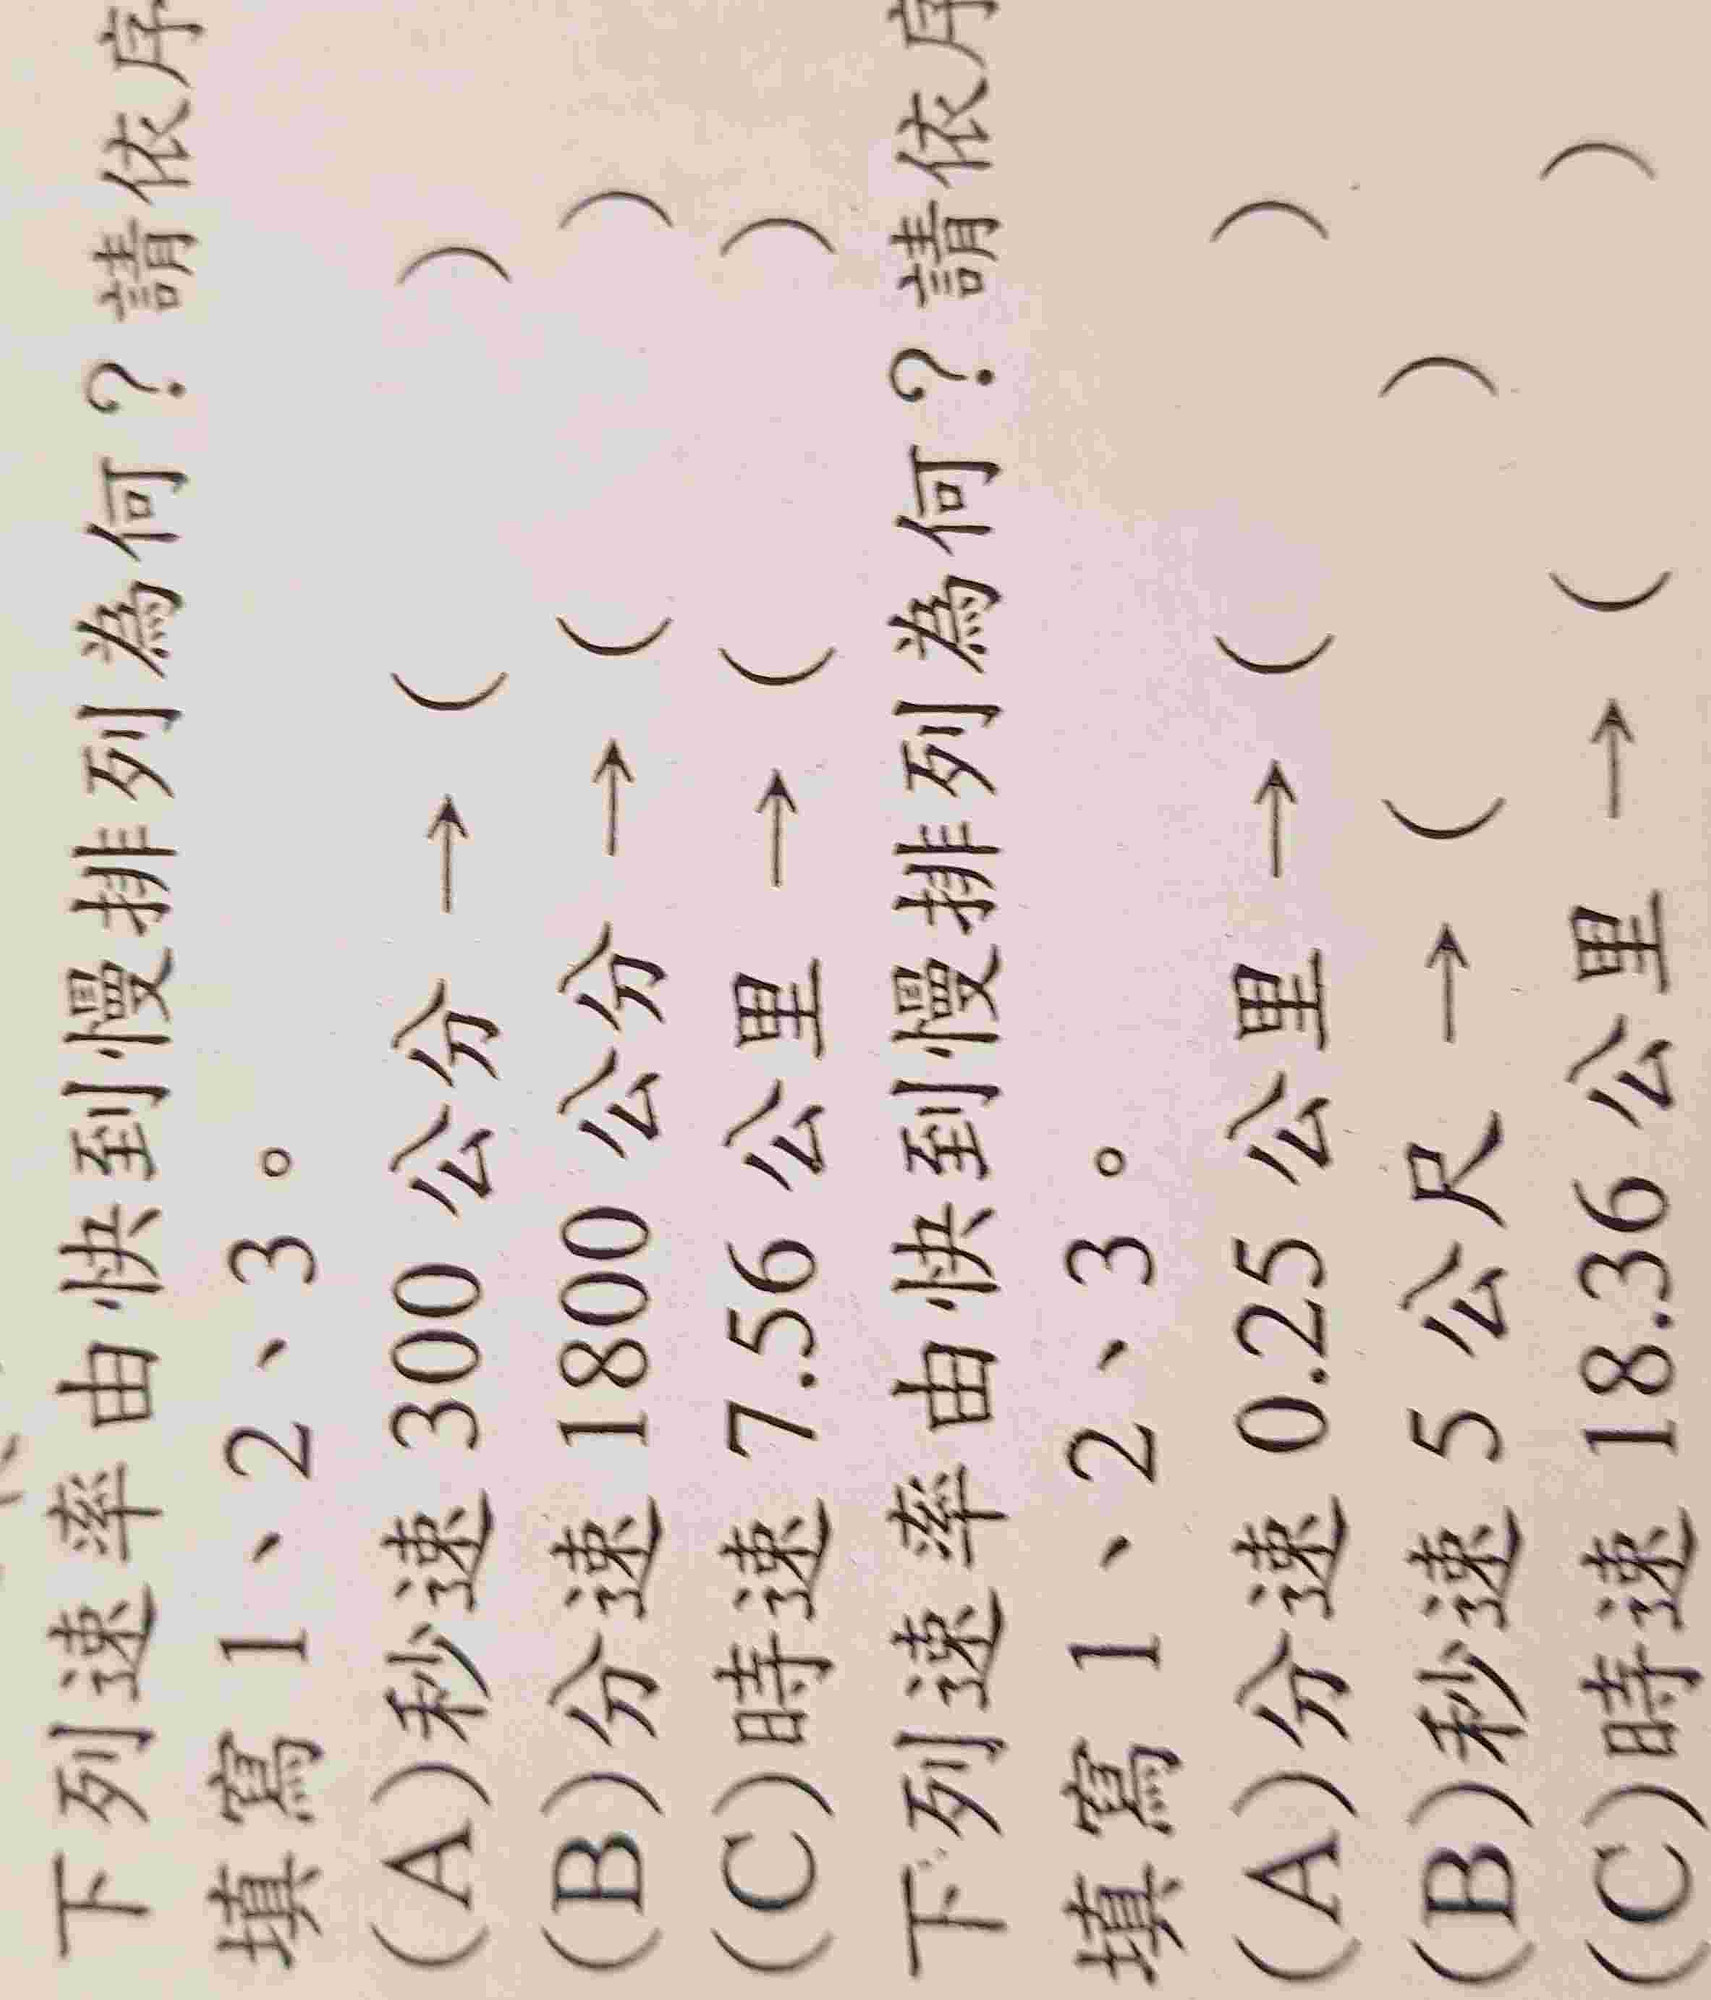 下列速率由快到慢排列為何？請依序
填寫 1、2、3。
(A)秒速 300 公分 → (　　)
(B)分速 1800 公分 → (　　)
(C)時速 7.56 公里 → (　　)
下列速率由快到慢排列為何？請依序
填寫 1、2、3。
(A)分速 0.25 公里 → (　　)
(B)秒速 5 公尺 → (　　)
(C)時速 18.36 公里 → (　　)